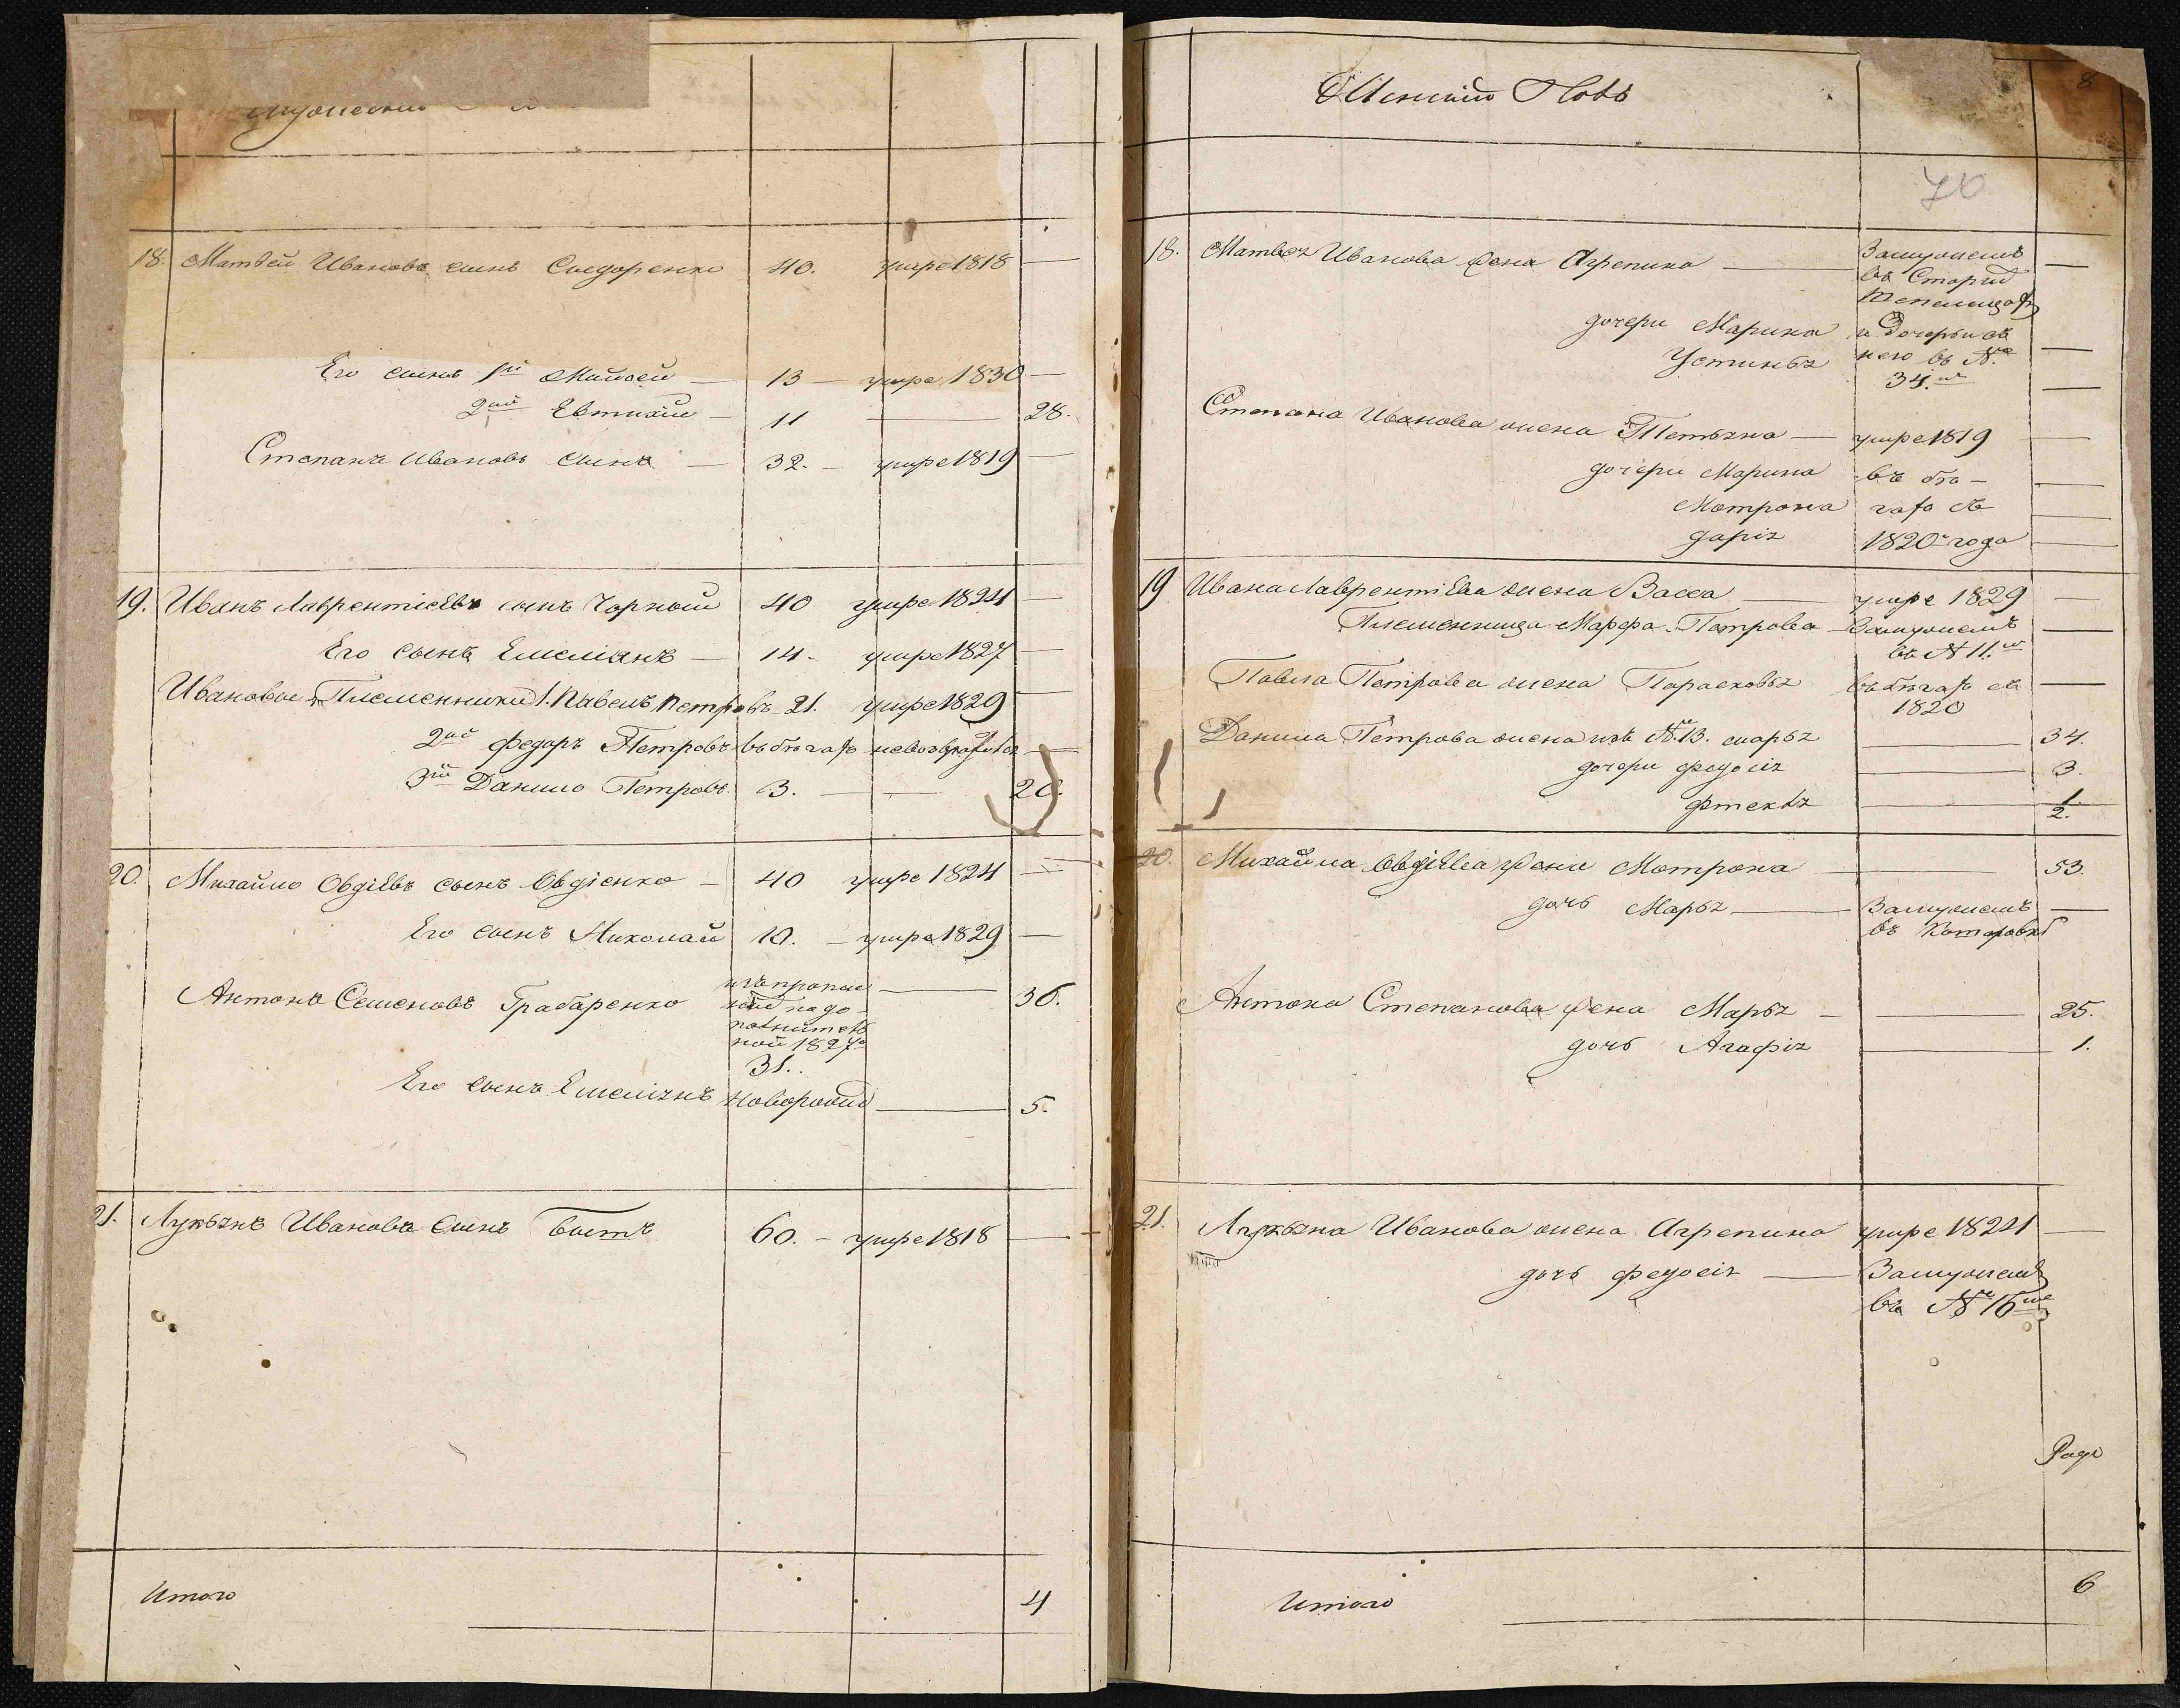 18. Матвей Ивановъ сынъ Сидоренко 40. умре 1818 —
Его сынъ 1й Мойсей — 13 — умре 1830 —
2ой Евтихій — 11 — 28.
Степанъ Ивановъ сынъ — 32. — умре 1819 —
19. Иванъ Лаврентіевъ сынъ Чорный 40 умре 1824 —
Его сынъ Емеліянъ — 14 - умре 1827 —
Ивановы Племенники 1. Павелъ Петровъ 21. умре 1829 —
2ой Федоръ Петровъ въ бѣгахъ —
3й Данило Петровъ 13. — — 28.
20. Михайло Овдіевъ сынъ Овдіенко — 40 умре 1824 —
Его сынъ Николай 10. — умре 1829 —
Антонъ Семеновъ Грабаренко — 36.
по до-
полнитель
ной 1827го
31..
Его сынъ Емеліянъ новорожд — 5.
21. Лукьянъ Ивановъ сынъ Бытъ 60. — умре 1818 —
Итого 4
Женскій Полъ
8
70
18. Матвея Иванова жена Агрепина — Замужемъ —
въ Старид
дочери Марина и дочерьми съ —
Устинья нею въ №е —
34.мъ
Степана Иванова жена Татьяна — умре 1819 —
дочери Марина въ бѣ- —
Мотрона гахъ съ —
Дарія 1820го года —
19 Ивана Лаврентіева жена Васса — умре 1829 —
Племенница Марфа Петрова — Замужемъ —
въ № 11.мъ
Павла Петрова жена Парасковья въ бѣгахъ съ —
1820
Данила Петрова жена изъ №. 13. Марья — 34.
дочери Федосія — 3.
Фтекля — 1/2.
20. Михайла Овдіева жена Мотрона — 53.
дочь Марья — Замужемъ —
въ Которовкѣ
Антона Степанова жена Марья — — 25.
дочь Агафія — 1.
21. Лукьяна Иванова жена Агрепина умре 1824 —
дочь Федосія — Замужемъ
въ №е 16мъ
Итого 6